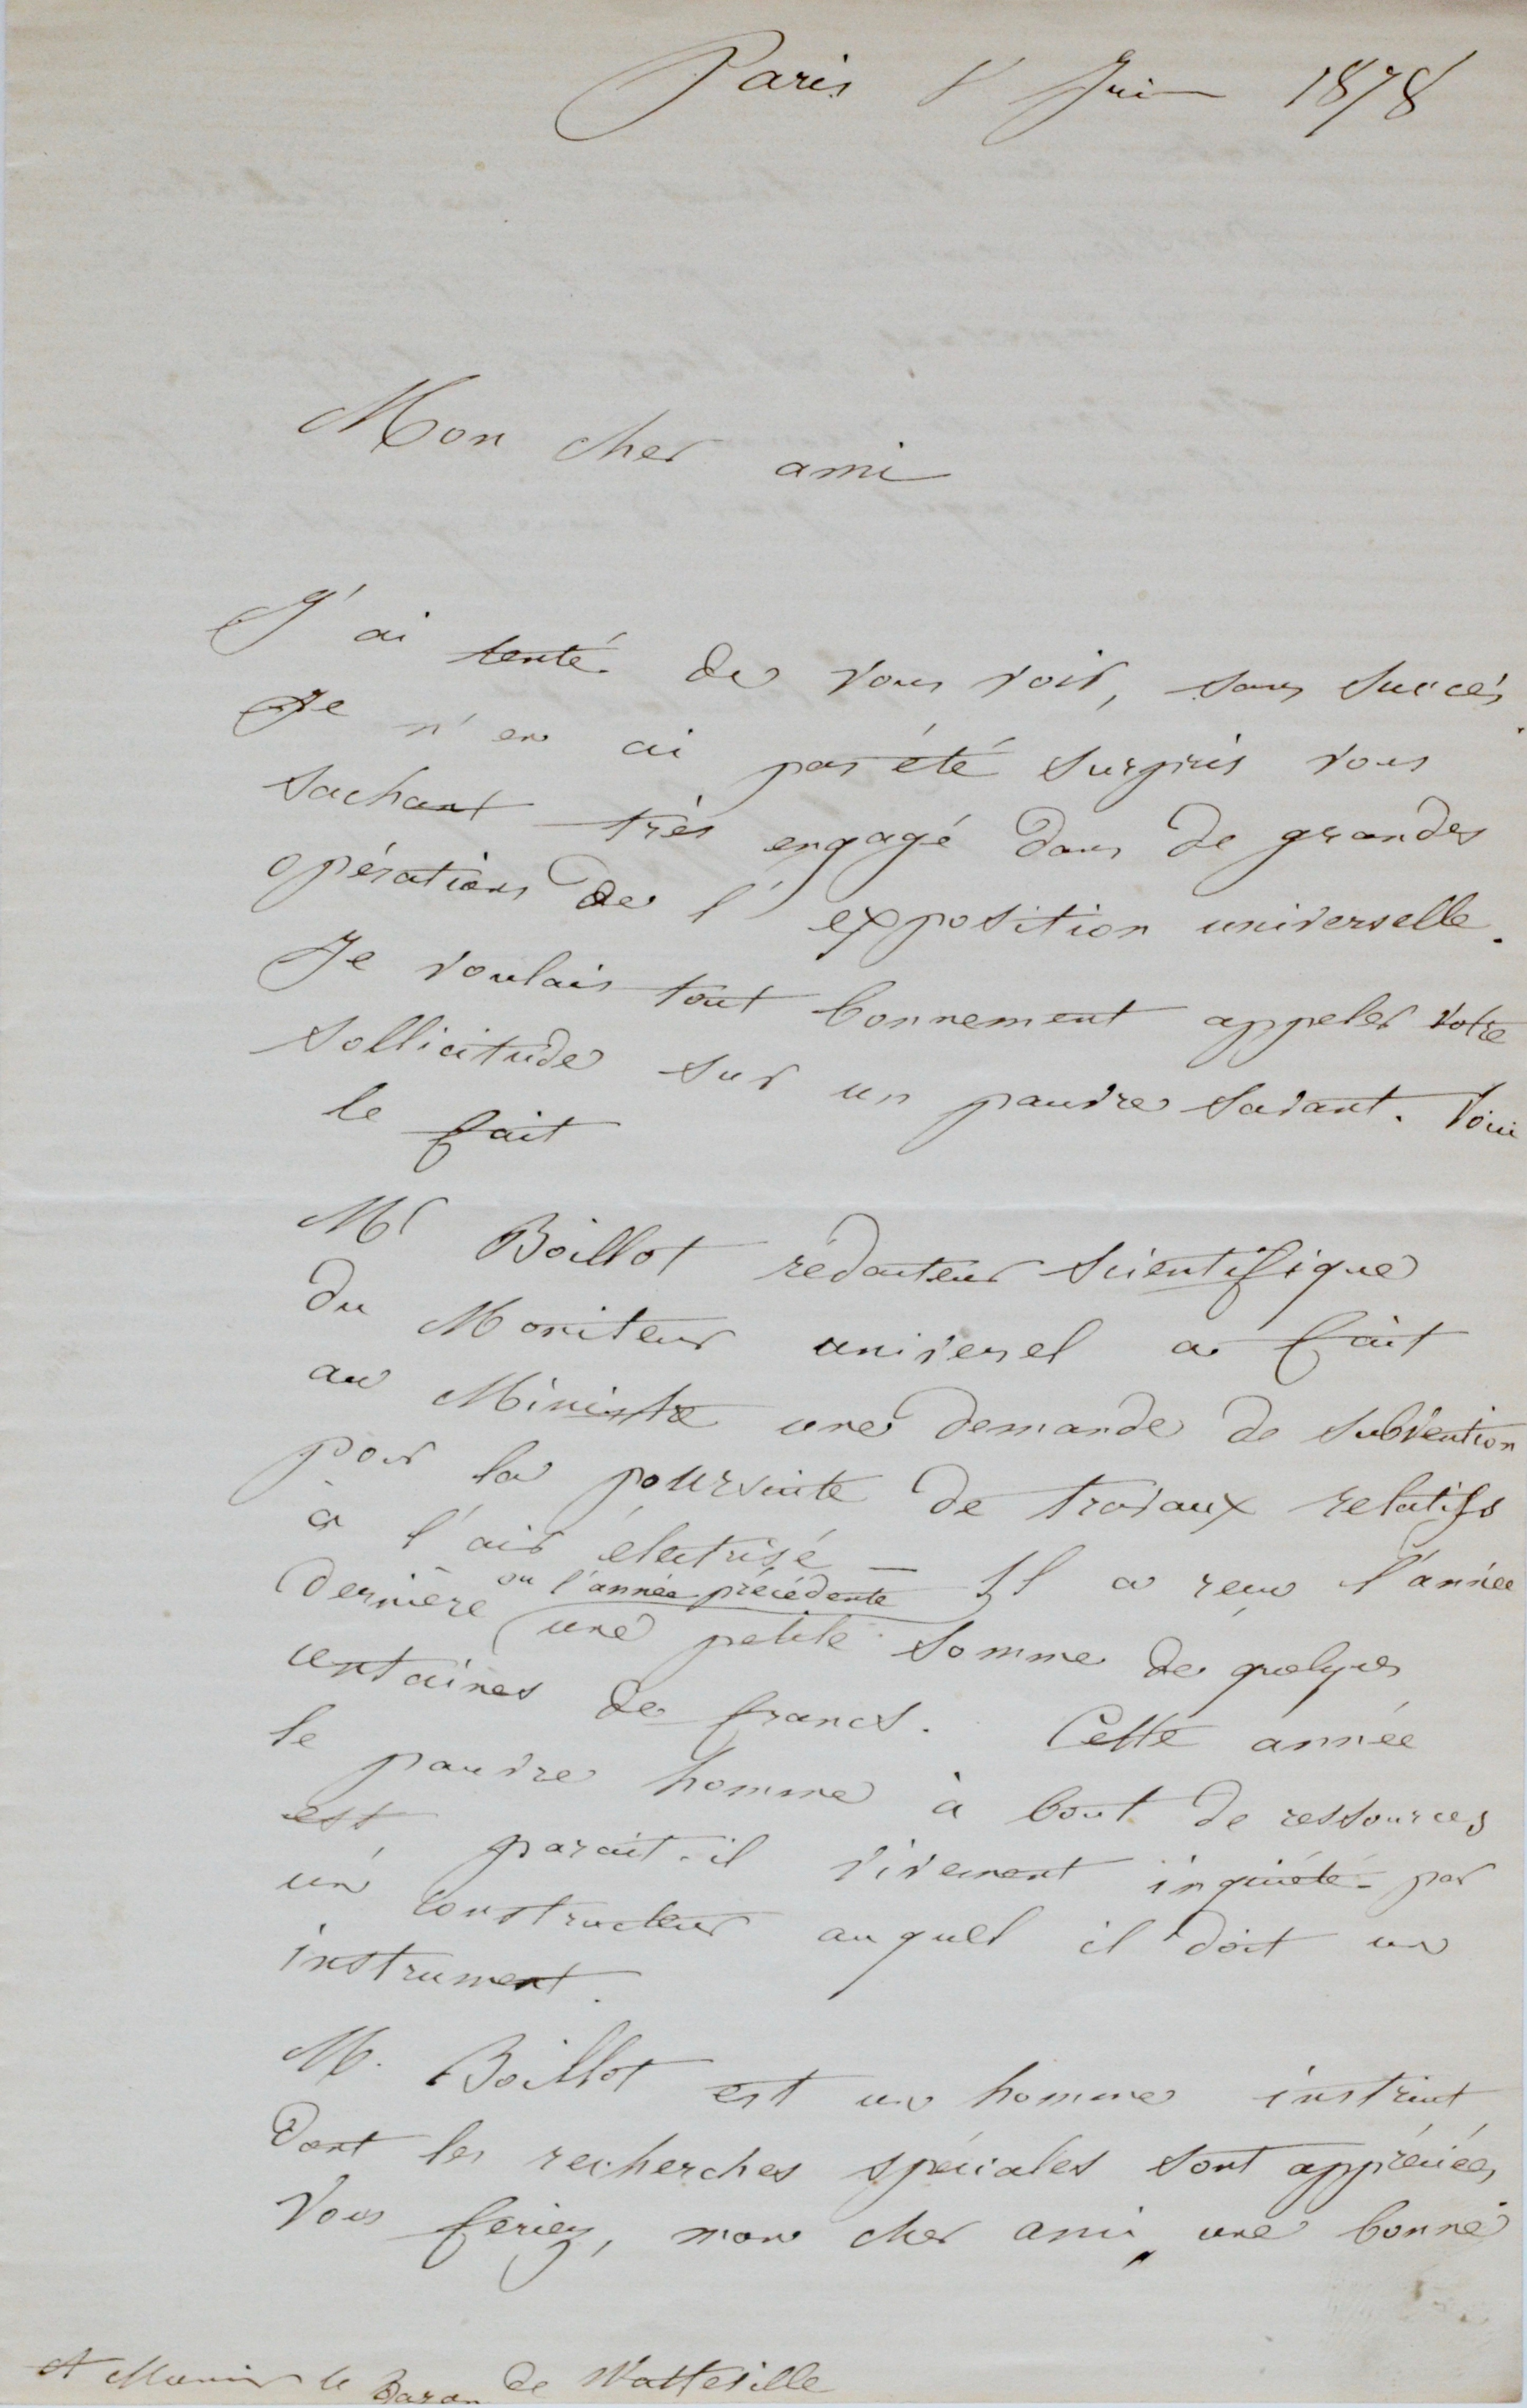 Paris 8 Juin 1878
Mon cher ami
J'ai tenté de vous voir, sans succès.
Je n'en ai pas été surpris vous
sachant très engagé dans de grandes
opérations de l'exposition universelle.
Je voulais tout bonnement appeler votre
sollicitude sur un pauvre savant. Voici
le fait
Mr Boillot rédacteur scientifique
du Moniteur universel a fait
au Ministre une demande de subvention
pour la poursuite de travaux relatifs
à l'air électrisé — Il a reçu l'année
ou l'année précédente
dernière une petite somme de quelques
centaines de francs. Cette année
le pauvre homme à bout de ressources
est, parait-il vivement inquiété par
un constructeur auquel il doit un
instrument.
M. Boillot est un homme instruit
dont les recherches spéciales sont appréciées.
Vous feriez, mon cher ami, une bonne
A Monsieur le Baron de Watteville